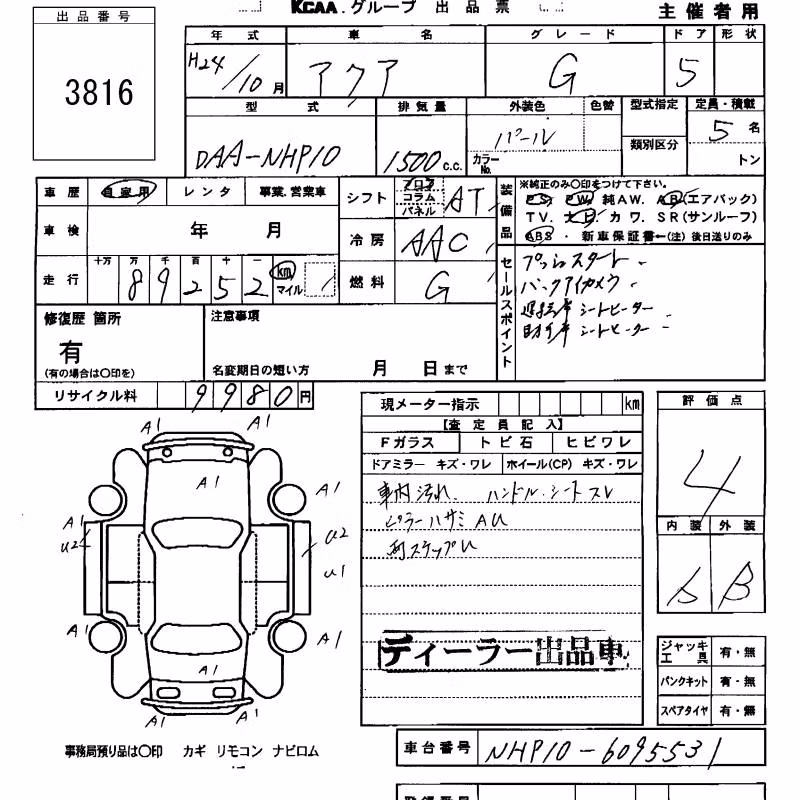 KCAA.グループ 出品票 主催者用
出品番号
3816
年式 車名 グレード ドア 形状
H24/10月 アクア G 5
型式 排気量 外装色 色替 型式指定 定員・積載
DAA-NHP10 1500c.c. パール カラーNo. 類別区分 5名 トン
車歴 自家用 レンタ 事業.営業車
車検 年 月
走行 十万 万 千 百 十 一 km マイル
89252
シフト フロア コラム パネル AT
冷房 AAC
燃料 G
装備品
※純正のみ〇印をつけて下さい。
PS. PW. 純AW. AB(エアバック)
TV. ナビ. カワ. SR(サンルーフ)
ABS ・ 新車保証書←(注)後日送りのみ
セールスポイント
プッシュスタート
バックアイカメラ
運転席 シートヒーター
助手席 シートヒーター
修復歴 箇所
有
(有の場合は〇印を)
注意事項
名変期日の短い方 月 日まで
リサイクル料 9980円
現メーター指示 km
【査定員記入】
Fガラス トビ石 ヒビワレ
ドアミラー キズ・ワレ ホイール(CP) キズ・ワレ
車内汚れ. ハンドル・シートスレ
ピラーハサミAU
ステップU
ディーラー出品車
評価点
4
内装 外装
B
ジャッキ工具 有・無
パンクキット 有・無
スペアタイヤ 有・無
A1 A1
A1
A1 A1
U2 U2
U1
A1 A1
A1
A1 A1
事務局預り品は〇印 カギ リモコン ナビロム
車台番号 NHP10-6095531